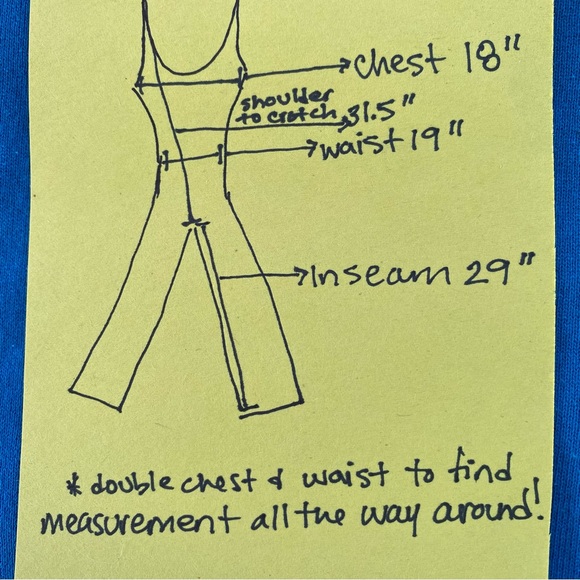 chest 18"
shoulder
to crotch 31.5"
waist 19"
Inseam 29"
* double chest & waist to find
measurement all the way around!